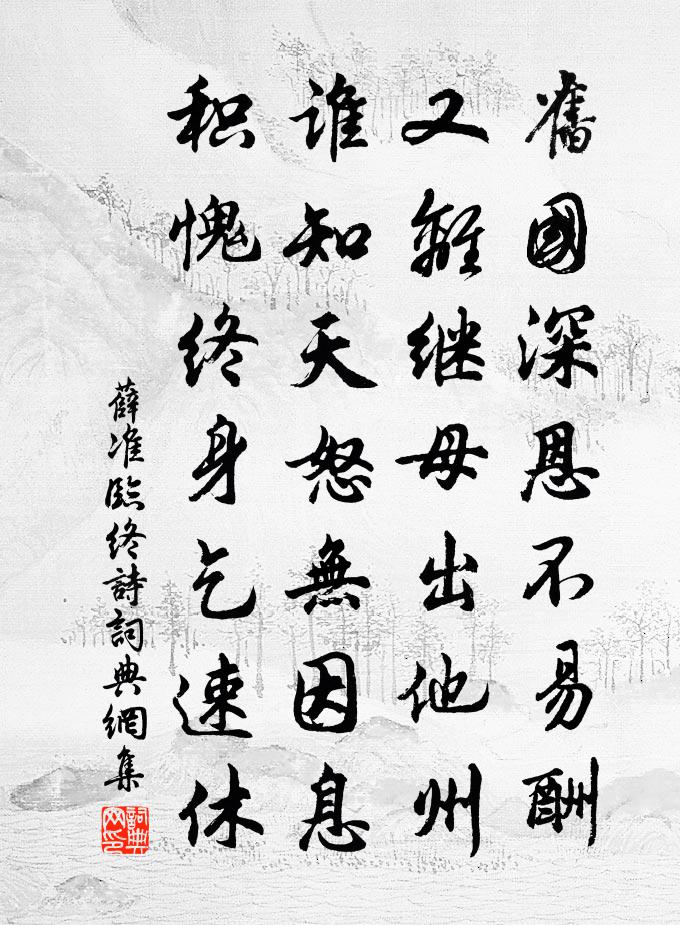 舊國深恩不易酬
又離继母出他州
谁知天怒無因息
积愧终身乞速休
薛准臨终詩詞典網集
詞典網印